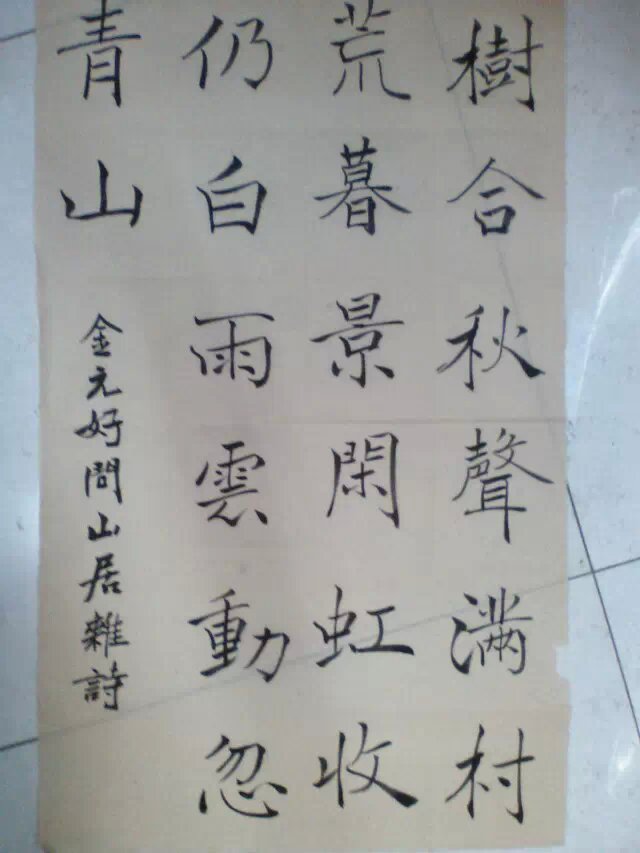 樹合秋聲滿村
荒暮景閑虹收
仍白雨雲動忽
青山
金元好問山居雜詩